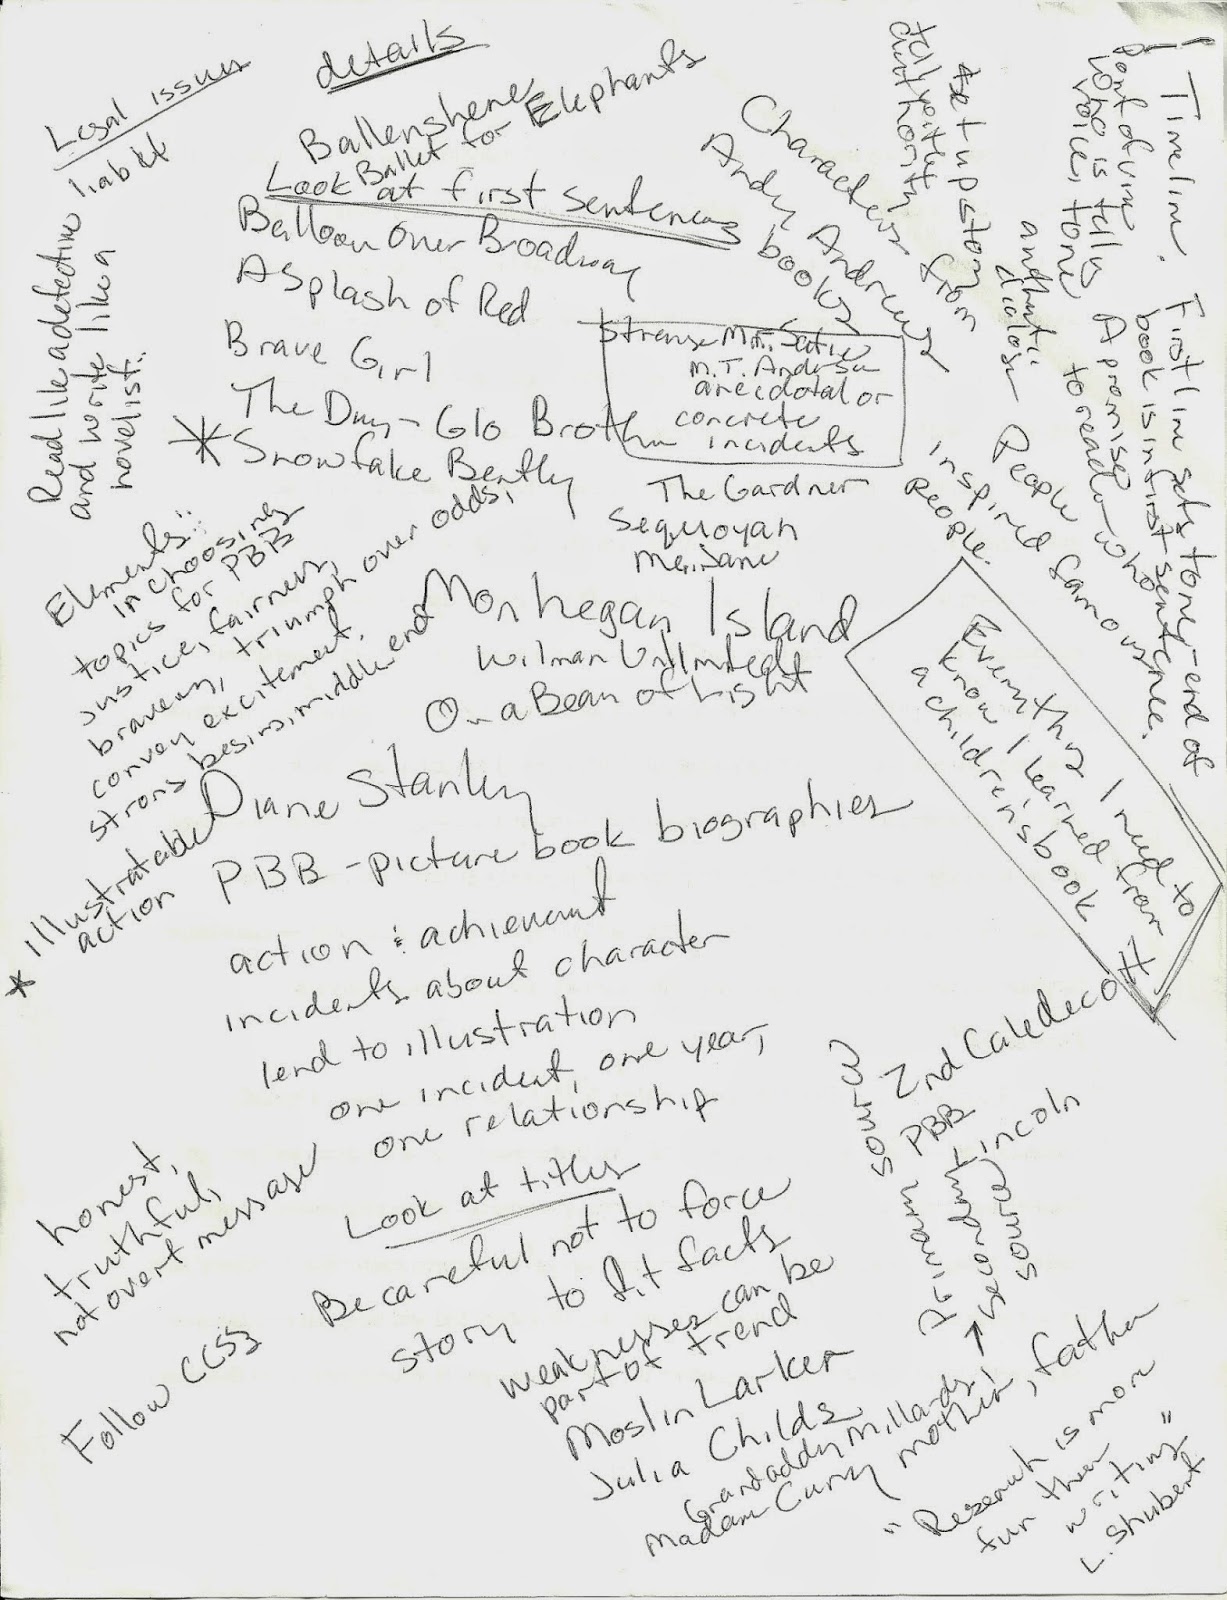 Legal issues
liabit
details
Ballenshene
Ballet for Elephants
Look at first sentences
Balloon Over Broadway
A Splash of Red
Brave Girl
The Day-Glo Brothers
* Snowflake Bently
Read like a detective
and write like a
novelist.
Characters from
Andy Andrews
books
Strange Mr. Satie
M.T. Anderson
anecdotal or
concrete
incidents
The Gardner
Sequoyah
Monhegan Island
Wilman Unlimited
On a Beam of Light
set up story
authority
dialog
Timeline. First line sets tone - end of
book is in first sentence.
A promise
to reader - who
who is telling
voice, tone
People
inspired famous
people.
Everything I need to
know I learned from
a children's book
Elements:
in choosing
topics for PBB
justice, fairness,
bravery, triumph over odds,
convey excitement.
strong begins, middle end
* illustratable
action
Diane Stanley
PBB - picture book biographies
action & achievement
incidents about character
lend to illustration
one incident, one year,
one relationship
Look at titles
honest,
truthful,
not overt message
Follow CCSS
Be careful not to force
story to fit facts
weaknesses can be
part of trend
Moslin Larker
Julia Childs
Grandaddy Millards
Madam Curry mother, father
2nd Caledecott
PBB
Lincoln
Primary source
→ secondary
source
"Research is more
fun then
writing"
L. Shubert